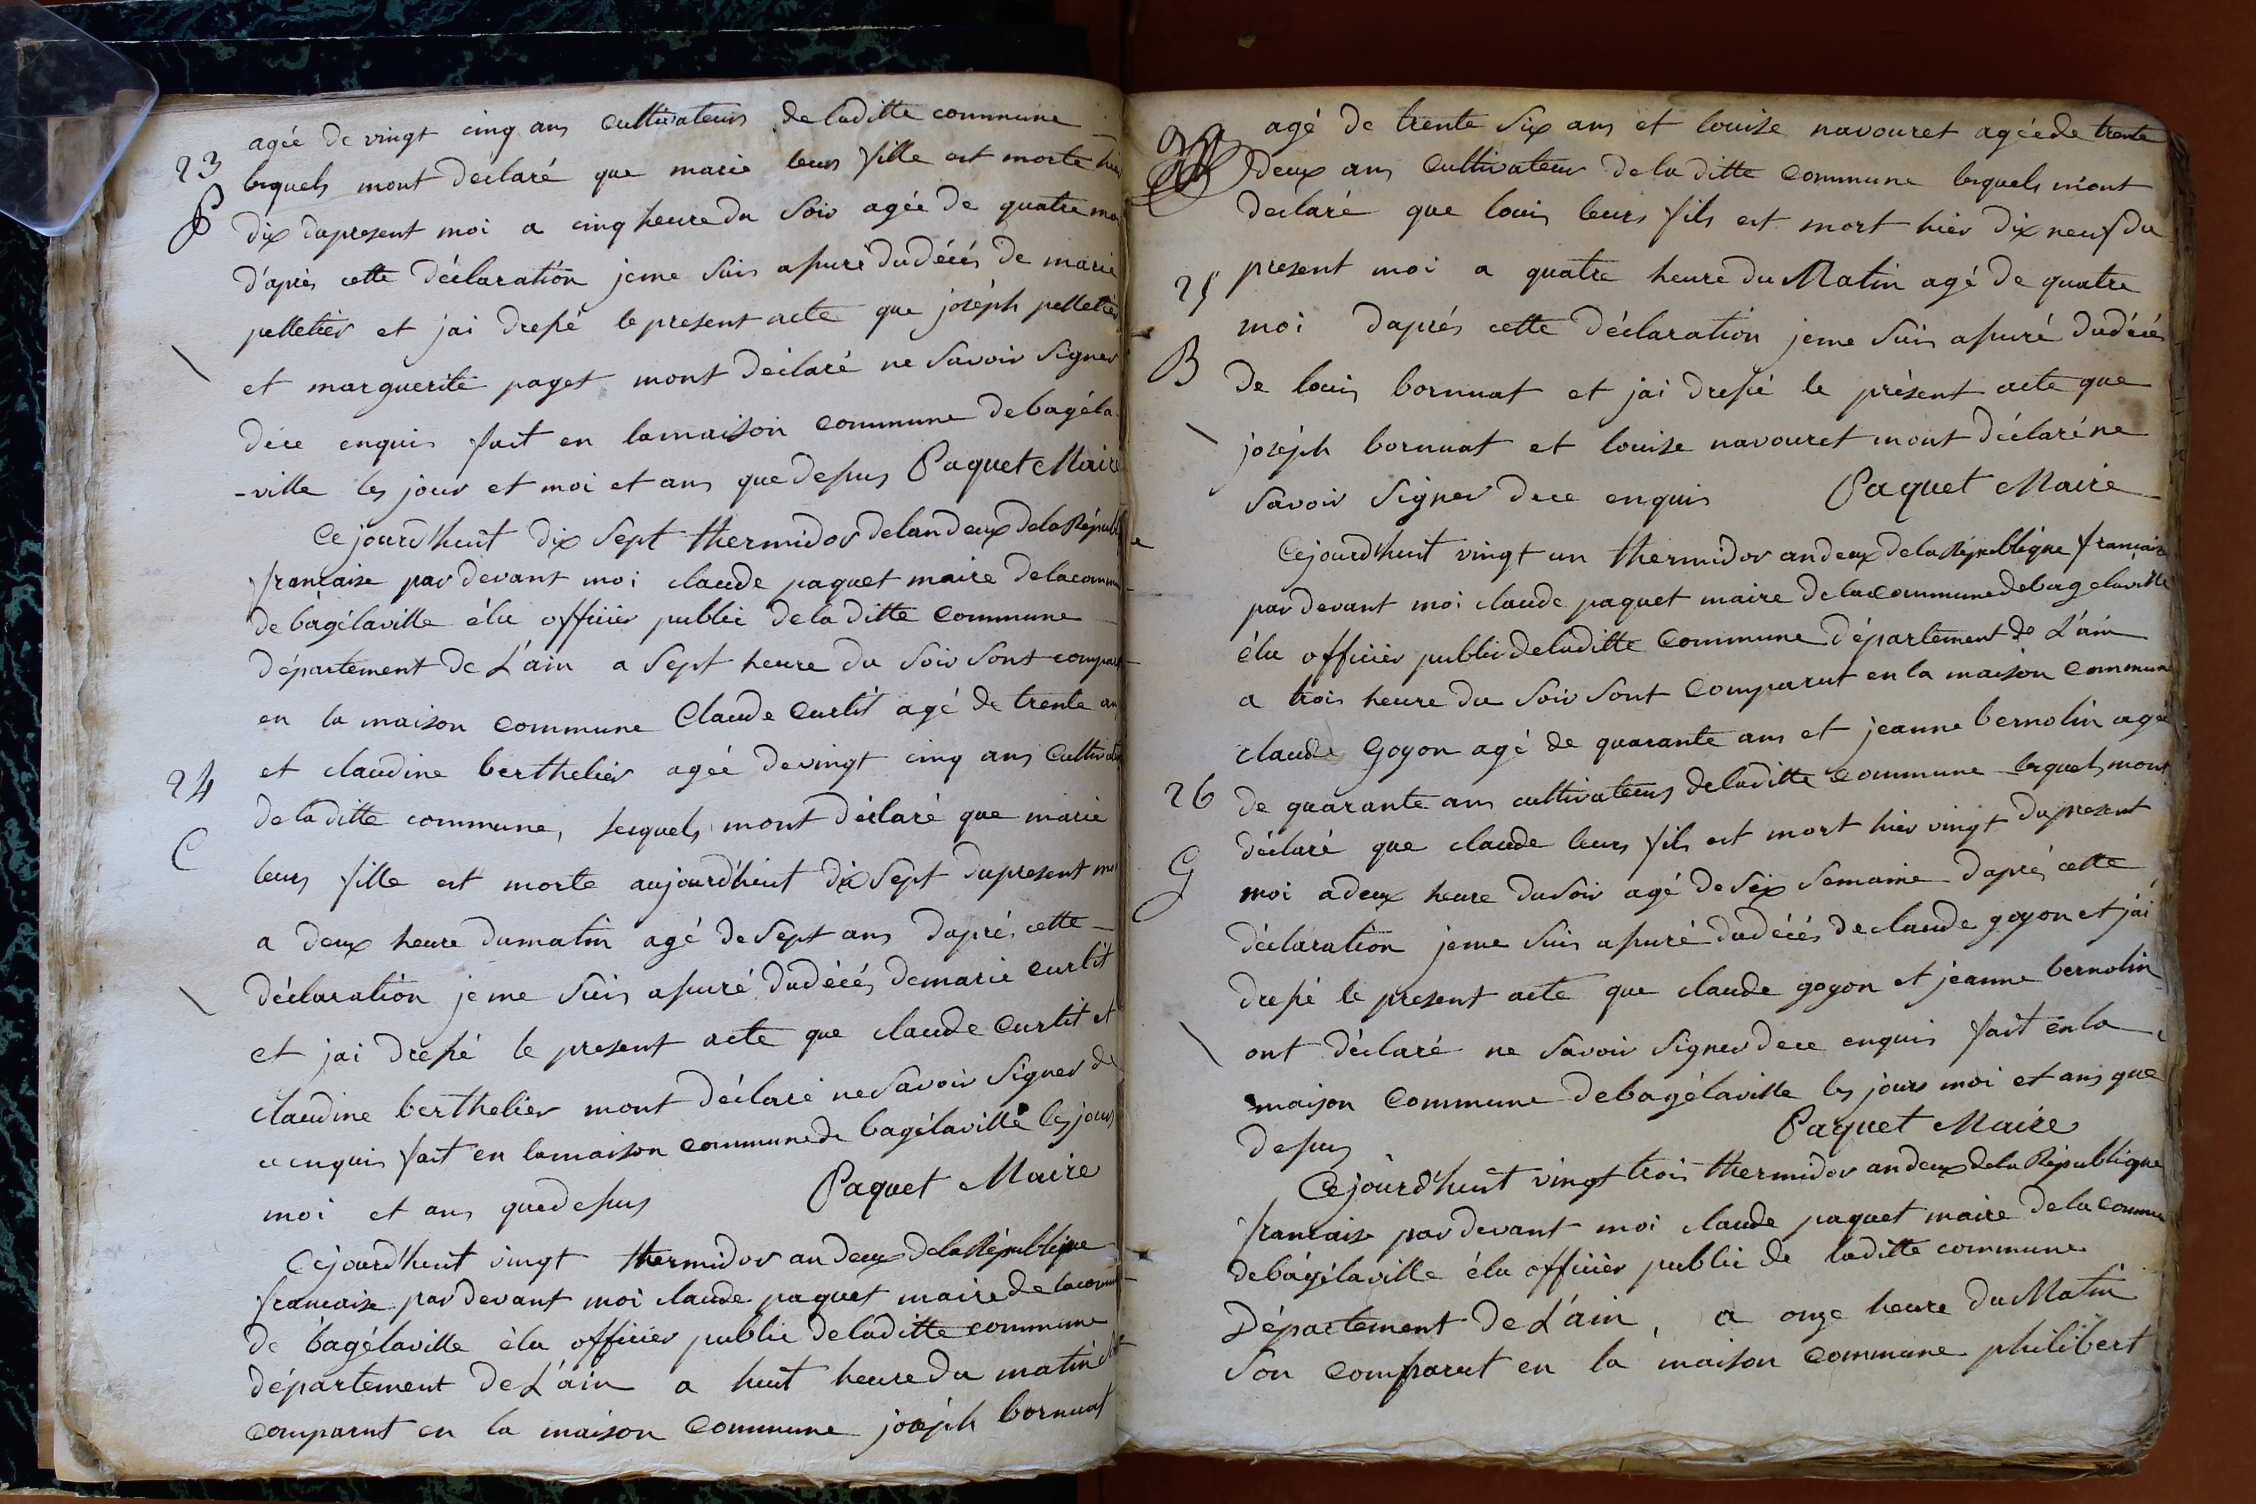 agée de vingt cinq ans cultivateurs de laditte commune
23 lesquels mont déclaré que marie leurs fille est morte hier
P dix dupresent moi a cinq heure du soir agée de quatre moi
d'après cette déclaration jeme suis assuré dudécés de marie
pelletier et jai dressé le present acte que joséph pelletier
et marguerite paget mont déclaré ne savoir signer
dece enquis fait en lamaison commune debagéla
-ville les jour et moi et ans que dessus Paquet Maire
Cejourd'huit dix sept thermidor delandeux dela Républi
francaise par devant moi claude paquet maire delacommu
de bágélaville élu officier public dela ditte commune
département de L'ain a sept heure du soir sont comparut
en la maison commune Claude Curtit agé de trente ans
et claudine berthelier agée devingt cinq ans cultivat
24 dela ditte commune, lesquels mont déclaré que marie
C leurs fille est morte aujourd'huit dix sept dupresent moi
a deux heure dumatin agé de sept ans daprés cette
déclaration jeme suis assuré dudécés demarie curtit
et jai dressé le present acte que claude curtit et
claudine berthelier mont déclaré ne savoir signer de
ce enquis fait en lamaison communede bagélaville les jours
moi et ans quedessus Paquet Maire
Cejourd'huit vingt thermidor an deux dela République
francaise par devant moi claude paquet maire de lacommu
de bagélaville élu officier public deladitte commune
département deL'ain a huit heure du matin sont
comparut en la maison commune joséph bornuat
agé de trente six ans et louise navouret agéede trente
deux ans cultivateur dela ditte commune lesquels mont
declaré que louis leurs fils est mort hier dix neuf du
25 present moi a quatre heure du Matin agé de quatre
moi daprés cette déclaration jeme suis assuré dudécés
B de louis bornuat et jai dressé le présent acte que
joséph bornuat et louise navouret mont déclaré ne
savoir signer dece enquis Paquet Maire
Cejourd'huit vingt un thermidor andeux dela République francaise
par devant moi claude paquet maire delacommune debagelaville
élu officier public deladitte commune département de L'ain
a trois heure du soir sont comparut en la maison commune
claude Goyon agé de quarante ans et jeanne bernolin agée
26 de quarante ans cultivateurs deladitte commune lesquels mont
déclaré que claude leurs fils est mort hier vingt dupresent
G moi adeux heure dusoir agé desix semaine daprés cette
déclaration jeme suis assuré dudécés declaude goyon et j'ai
dressé le present acte que claude goyon et jeanne bernolin
ont déclaré ne savoir signer dece enquis fait en la
maison commune debagélaville les jours moi et ans que
dessus Paquet Maire
Cejourd'huit vingt trois thermidor andeux dela République
francaise par devant moi claude paquet maire dela commu
debágélaville élu officier public de laditte commune
Département de L'ain, a onze heure du Matin
son comparut en la maison commune philibert